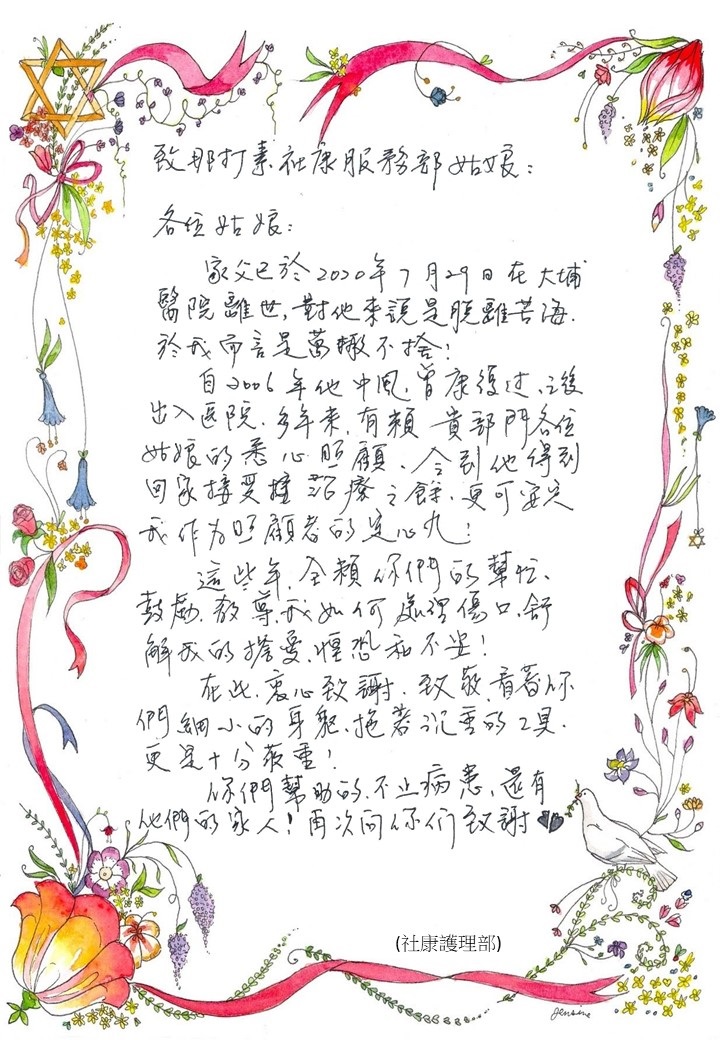 致那打素社康服務部姑娘：
各位姑娘：
家父已於2020年7月29日在大埔
醫院離世,對他來說是脫離苦海.
於我而言是萬撇不捨!
自2006年他中風,曾康復过,之後
出入医院.多年来,有賴 貴部門各位
姑娘的悉心照顧、令到他得到
回家接受 治療之餘,更可安定
我作为照顧者的定心丸!
這些年,全賴你們的幫忙、
鼓勵.教導我如何處理傷口.舒
解我的 憂,惶恐和不安!
在此,衷心致謝.致敬,看著你
們細小的身軀,拖着沉重的工具.
更是十分敬重!
你們幫助的,不止病患,還有
他們的家人!再次向你们致謝
(社康護理部)
Jensine